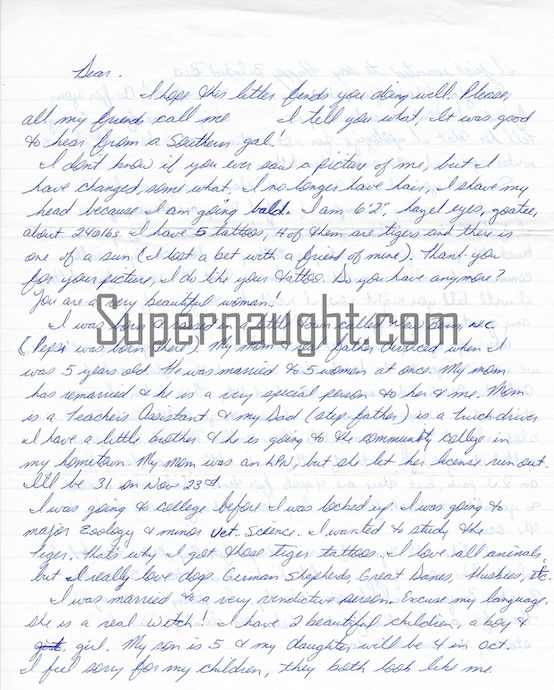 Dear .
I hope this letter finds you doing well. Please,
all my friends call me I tell you what, It was good
to hear from a Southern gal!
I don't know if you ever saw a picture of me, but I
have changed, some what. I no longer have hair, I shave my
head because I am going bald. I am 6'2", hazel eyes, goatee,
about 240lbs. I have 5 tattoos, 4 of them are tigers and there is
one of a sun (I lost a bet with a friend of mine). Thank you
for your picture, I do like your tattoo. Do you have anymore?
You are a very beautiful woman!
Supernaught.com
I was born & raised in a little town called New Bern, NC
(Pepsi was born there). My mom & real father divorced when I
was 5 years old. He was married to 5 women at once. My mom
has remarried & he is a very special person to her & me. Mom
is a Teacher's Assistant & my Dad (step father) is a truck driver.
I have a little brother & he is going to the community college in
my hometown. My mom was an LPN, but she let her license run out.
I'll be 31 on Nov 23rd.
I was going to college before I was locked up. I was going to
major Zoology & minor Vet. Science. I wanted to study the
tiger. That's why I got those tiger tattoos. I love all animals,
but I really love dogs. German Shepherds, Great Danes, Huskies, etc.
I was married to a very vindictive person. Excuse my language,
she is a real witch! I have 2 beautiful children, a boy &
girl. My son is 5 & my daughter will be 4 in Oct.
I feel sorry for my children, they both look like me.